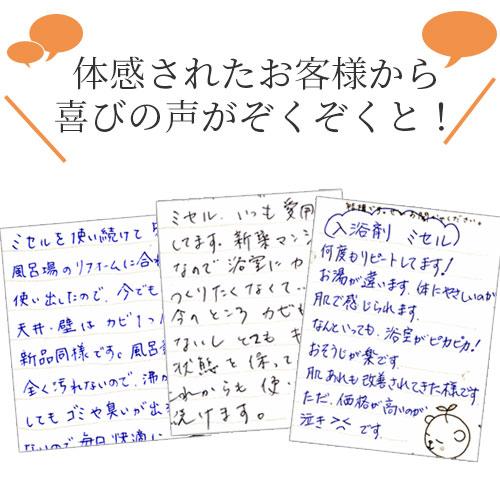 体感されたお客様から
喜びの声がぞくぞくと！
ミセルを使い続けて
風呂場のリフォームに合わ
使い出したので、今でも
天井・壁はカビ1つ
新品同様です。風呂
全く汚れないので、沸か
してもゴミや臭いが出
ないので毎日快適に
ミセル、いつも愛用
してます。新築マンシ
なので浴室にカ
つくりたくなくて…
今のところカビも
ないしとてもキ
状態を保って
これからも使い
続けます。
入浴剤 ミセル
何度もリピートしてます!
お湯が違います。体にやさしいのが
肌で感じられます。
なんといっても、浴室がピカピカ!
おそうじが楽です。
肌あれも改善されてきた様です
ただ、価格が高いのが
泣き><です。